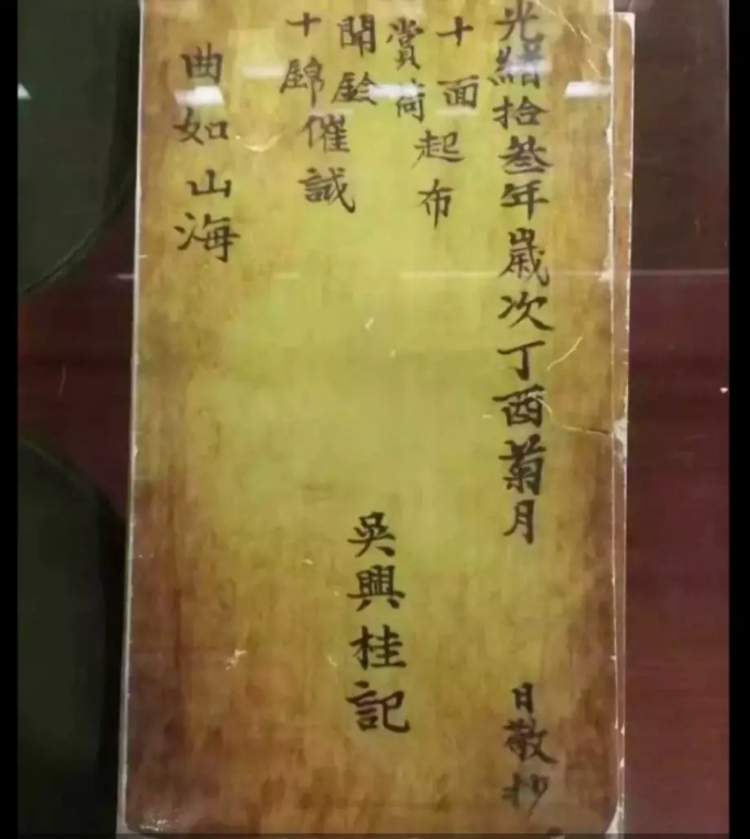 光緒拾叁年歲次丁酉菊月 日敬抄
十面
賞荷
起布
鈴
十錦
催誠
吳興桂記
曲如山海